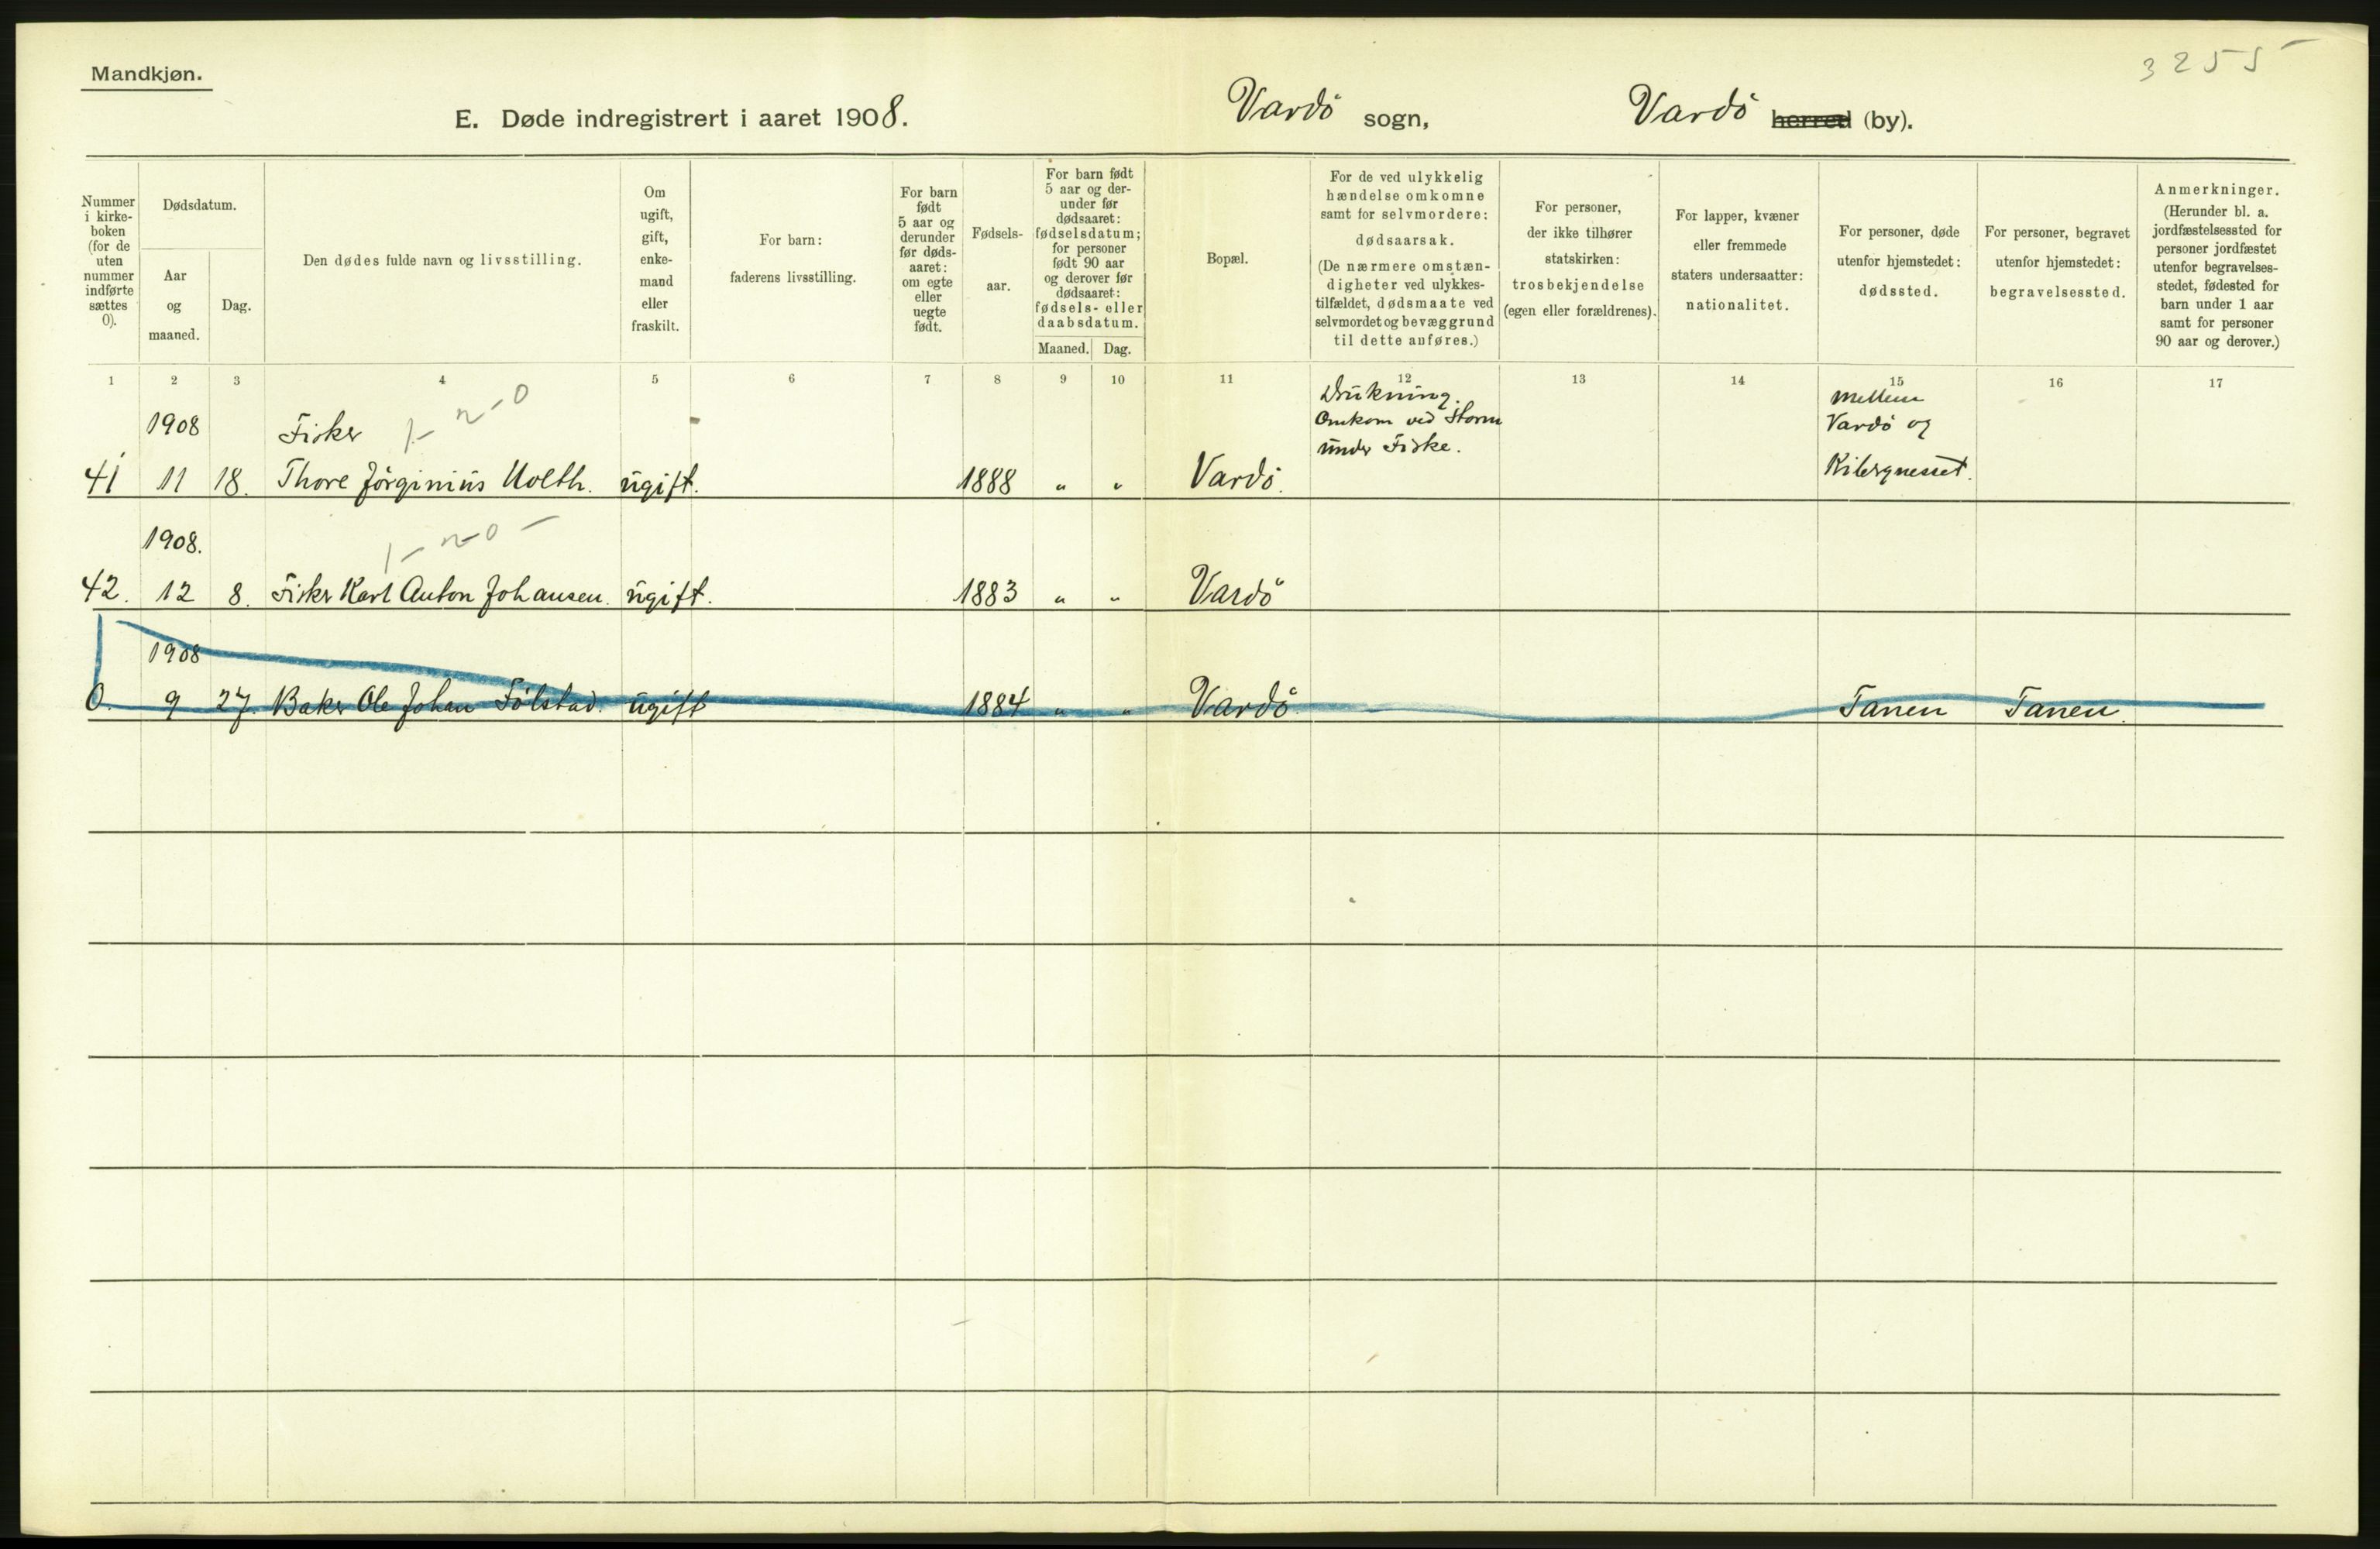 Mandkjøn.
3255
E. Døde indregistrert i aaret 1908. Vardö sogn, Vardö herred (by).
Nummer
i kirke-
boken
(for de
uten
nummer
indførte
sættes
0).
Dødsdatum.
Aar
og
maaned.
Dag.
Den dødes fulde navn og livsstilling.
Om
ugift,
gift,
enke-
mand
eller
fraskilt.
For barn:
faderens livsstilling.
For barn
født
5 aar og
derunder
før døds-
aaret:
om egte
eller
uegte
født.
Fødsels-
aar.
For barn født
5 aar og der-
under før
dødsaaret:
fødselsdatum;
for personer
født 90 aar
og derover før
dødsaaret:
fødsels- eller
daabsdatum.
Maaned. Dag.
Bopæl.
For de ved ulykkelig
hændelse omkomne
samt for selvmordere:
dødsaarsak.
(De nærmere omstæn-
digheter ved ulykkes-
tilfældet, dødsmaate ved
selvmordet og bevæggrund
til dette anføres.)
For personer,
der ikke tilhører
statskirken:
trosbekjendelse
(egen eller forældrenes).
For lapper, kvæner
eller fremmede
staters undersaatter:
nationalitet.
For personer, døde
utenfor hjemstedet:
dødssted.
For personer, begravet
utenfor hjemstedet:
begravelsessted.
Anmerkninger.
(Herunder bl. a.
jordfæstelsessted for
personer jordfæstet
utenfor begravelses-
stedet, fødested for
barn under 1 aar
samt for personer
90 aar og derover.)
1 2 3 4 5 6 7 8 9 10 11 12 13 14 15 16 17
1908 Fisker
41 11 18. Thore Jörginius ugift. 1888 " " Vardö.
Drukning.
Omkom ved Storm
under Fiske.
Mellem
Vardö og
Kibergnesset.
1908.
42. 12 8. Fisker Karl Anton Johansen. ugift. 1883 " " Vardö
1908
0. 9 27. Baker Ole Johan Fölstad. ugift 1884 " " Vardö. Tanen Tanen.